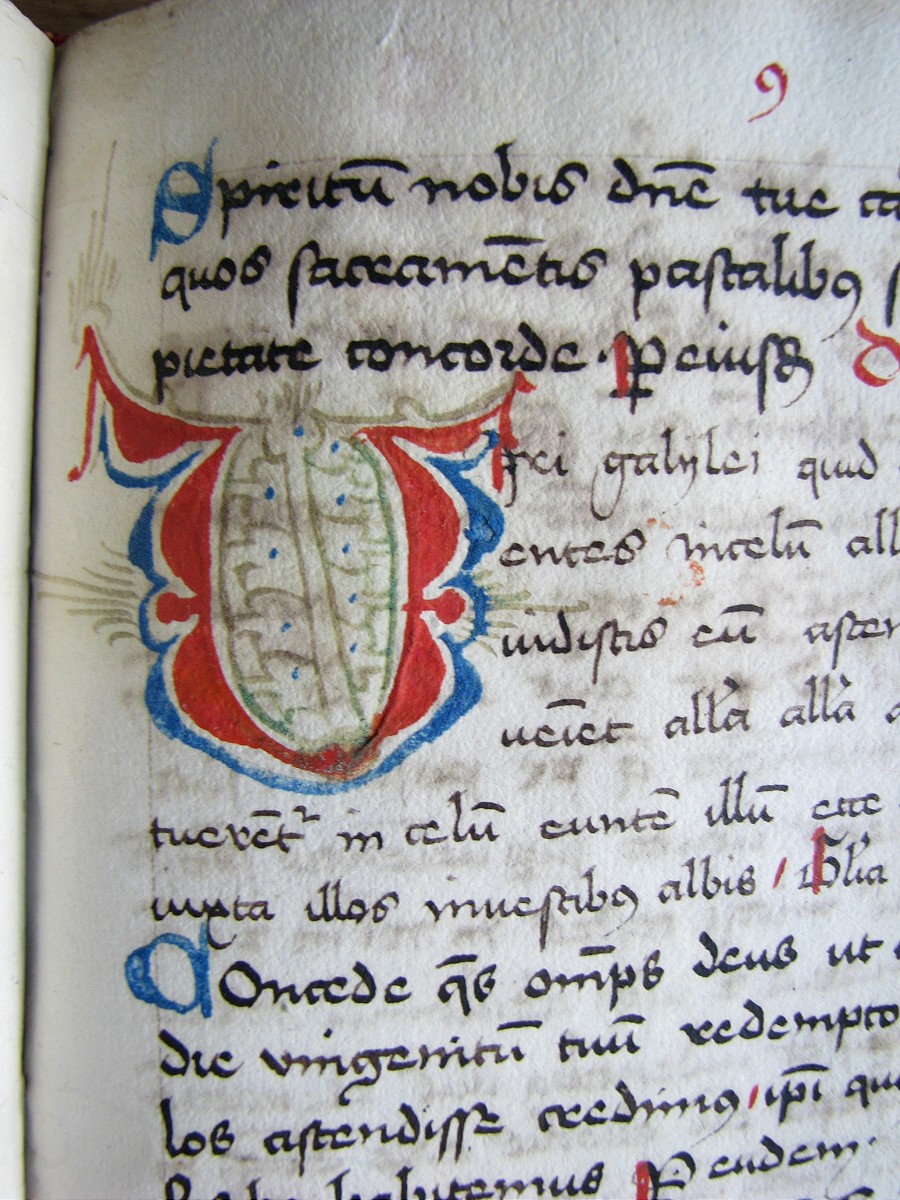 9
Spiritū nobis dn̄e tue
quos sacramētis pascalibꝰ
pietate concorde. P eiusꝫ
Viri galylei quid
entes in celū all
uidistis eū ascen
veīet all'a all'a
tuerēt^r in celū euntē illū ecce
iuxta illos in vestibꝰ albis Gl'ia
COncede q̄s om̄ps deus ut
die vnigenitū tuū redempto
los ascendisse credimꝰ ip̄i
habitemus P eundem